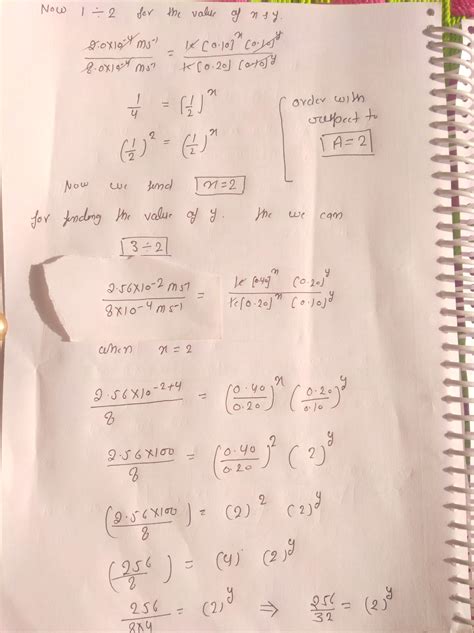 Now 1 ÷ 2 for the value of x & y.
2.0x10⁻⁴ ms⁻¹ / 8.0x10⁻⁴ ms⁻¹ = k [0.10]ˣ [0.10]ʸ / k [0.20] [0.10]ʸ
1/4 = (1/2)ˣ
order with
respect to
A=2
(1/2)² = (1/2)ˣ
Now we find x=2
for finding the value of y. the we can
3÷2
2.56x10⁻² ms⁻¹ / 8x10⁻⁴ ms⁻¹ = k [0.40]ˣ (0.20)ʸ / k [0.20]ˣ (0.10)ʸ
when x = 2
2.56x10⁻²⁺⁴ / 8 = (0.40/0.20)ˣ (0.20/0.10)ʸ
2.56x100 / 8 = (0.40/0.20)² (2)ʸ
(2.56x100 / 8) = (2)² (2)ʸ
(256/8) = (4) (2)ʸ
256 / 8x4 = (2)ʸ ⇒ 256/32 = (2)ʸ